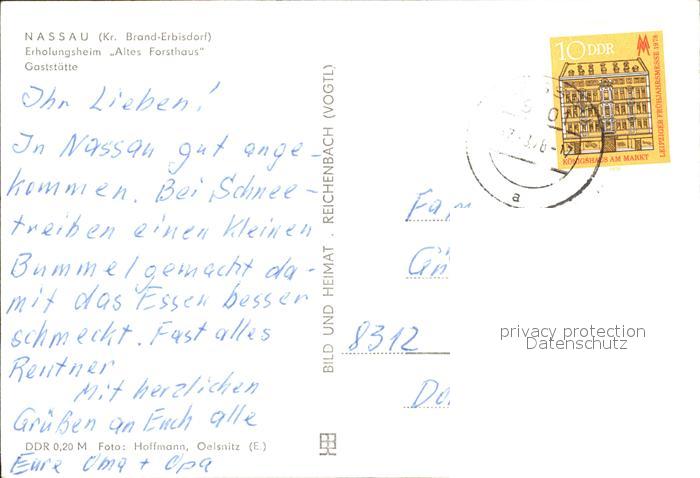 NASSAU (Kr. Brand-Erbisdorf)
Erholungsheim „Altes Forsthaus"
Gaststätte
Ihr Lieben!
In Nassau gut ange-
kommen. Bei Schnee-
treiben einen kleinen
Bummel gemacht da-
mit das Essen besser
schmeckt. Fast alles
Rentner
Mit herzlichen
Grüßen an Euch alle
DDR 0,20 M Foto: Hoffmann, Oelsnitz (E.)
Eure Oma + Opa
BILD UND HEIMAT . REICHENBACH (VOGTL)
10 DDR
LEIPZIGER FRÜHJAHRSMESSE 1978
KÖNIGSHAUS AM MARKT
a
8312
privacy protection
Datenschutz